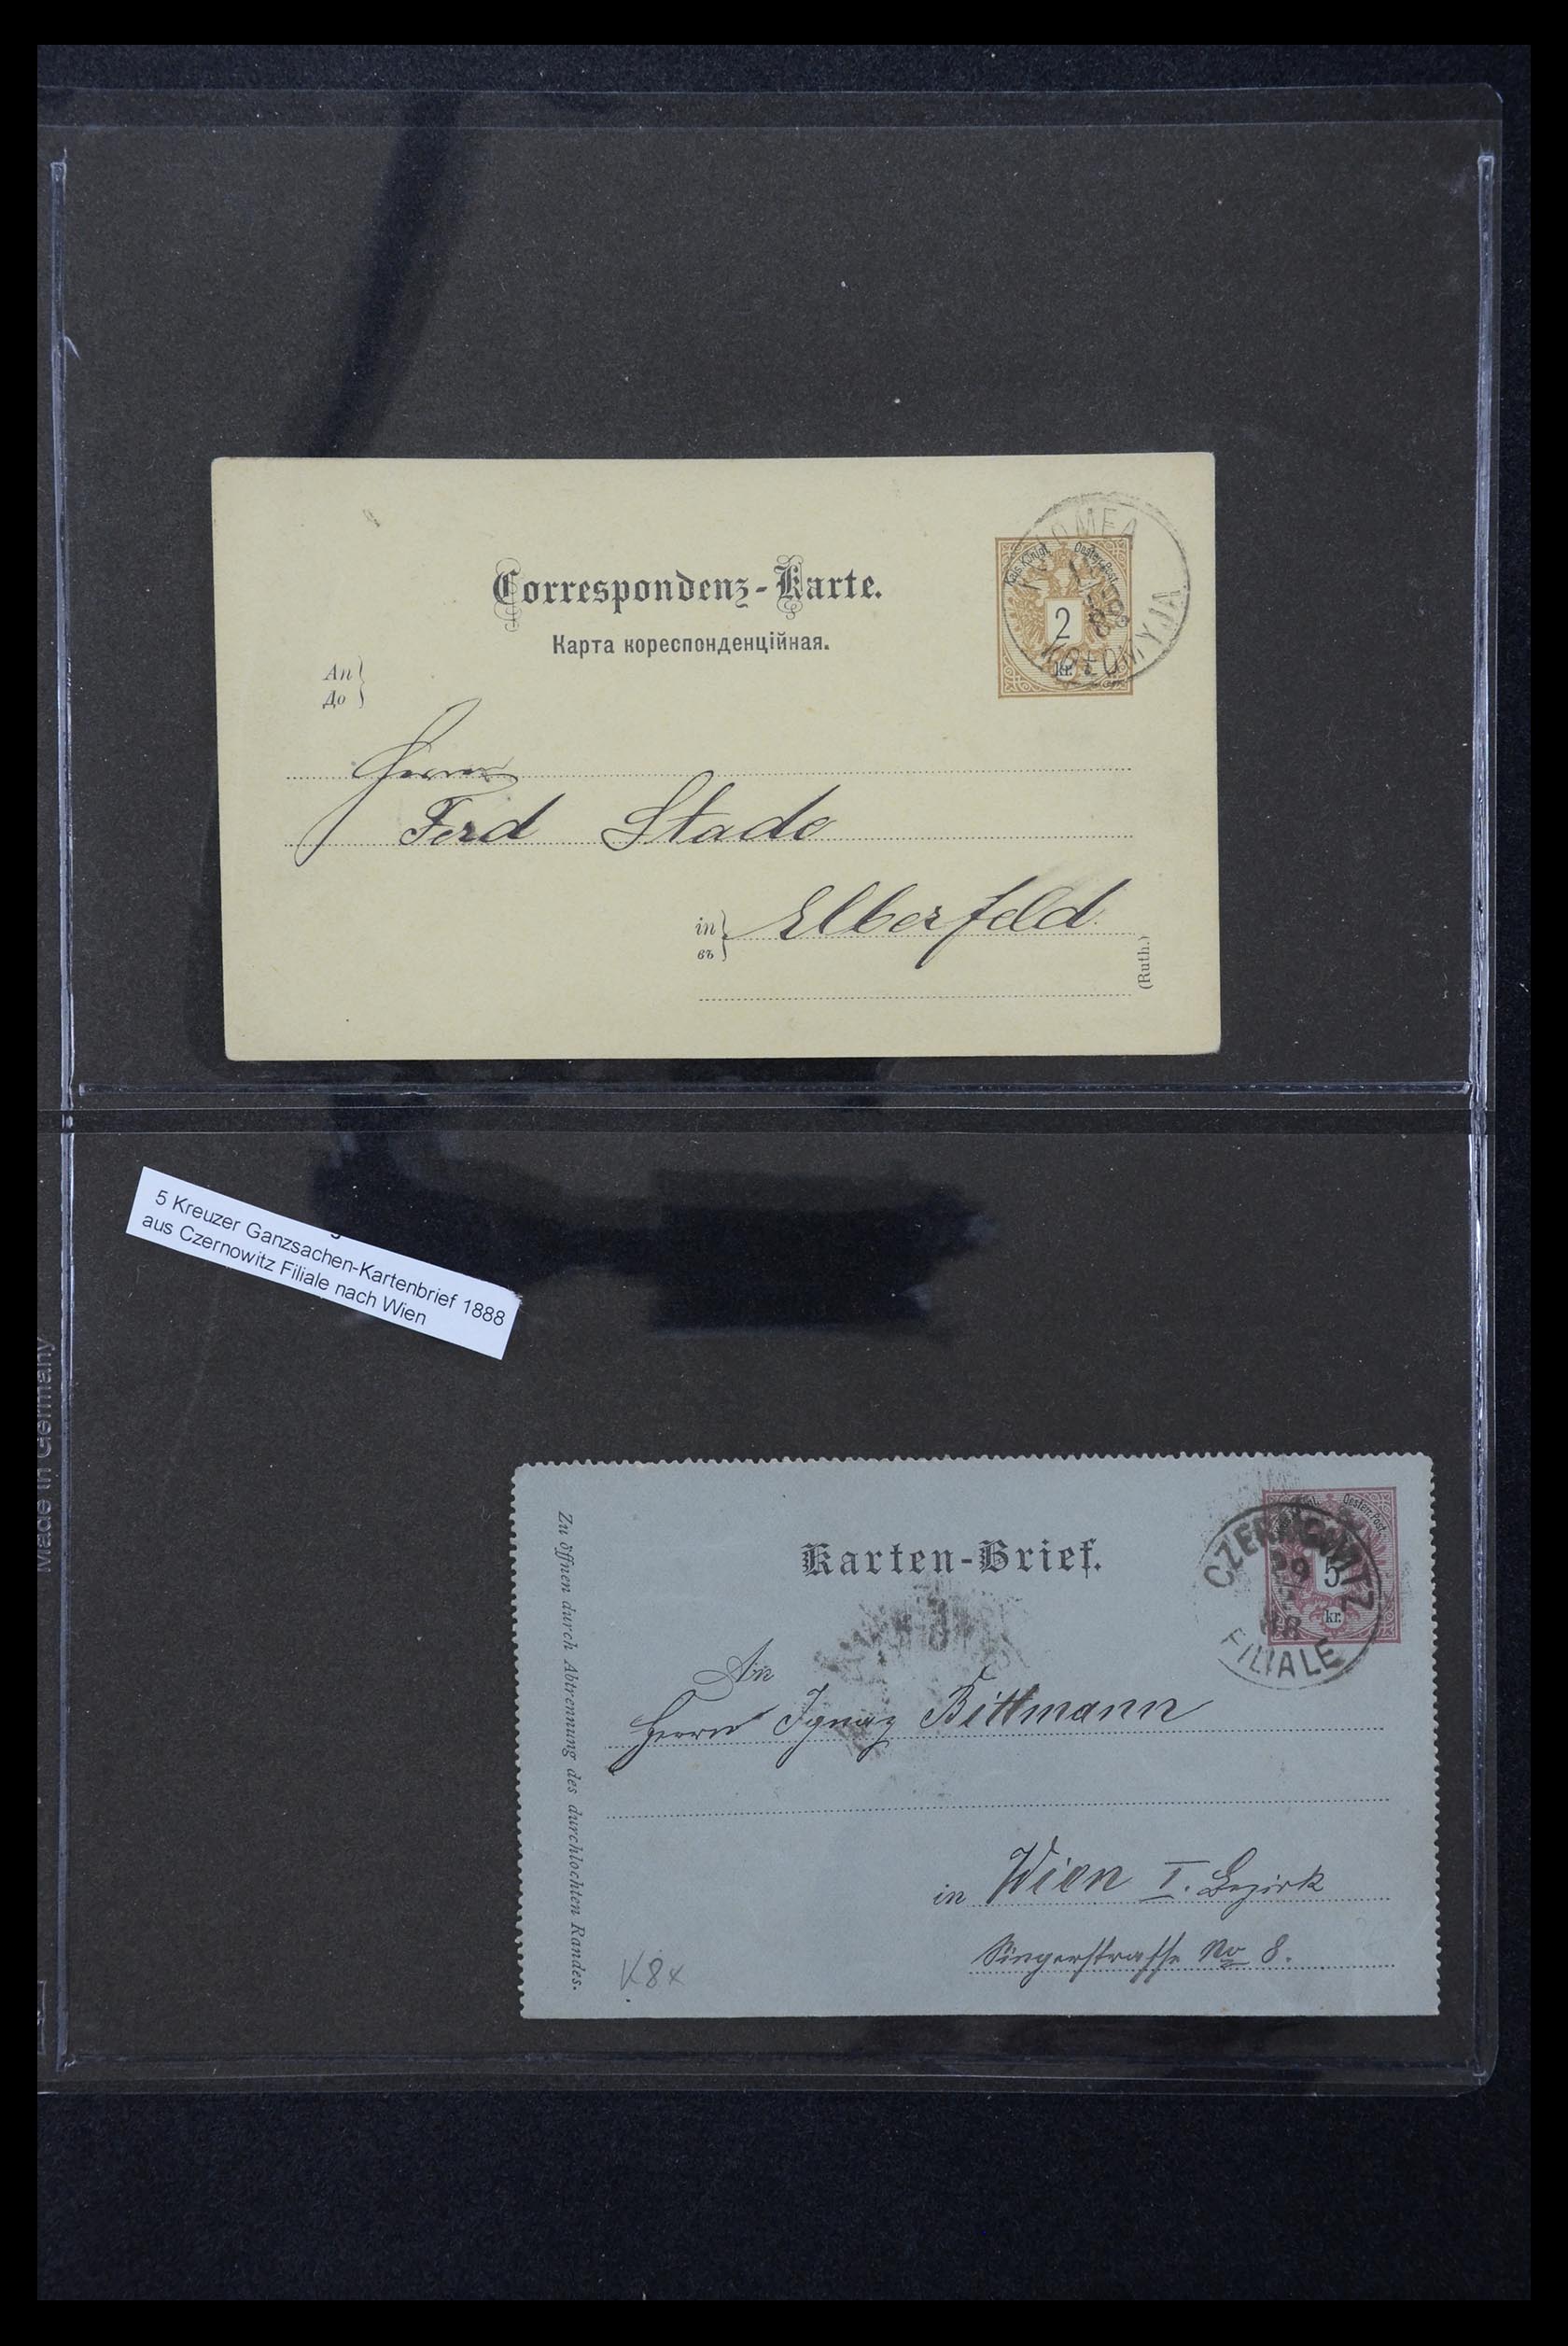 Correspondenz-Karte.
Карта кореспонденційная.
Kais. Königl. Oesterr. Post.
2
kr.
KOŁOMYJA
An
До
Herrn
Ferd Stade
in
въ
Elberfeld.
(Ruth.)
5 Kreuzer Ganzsachen-Kartenbrief 1888
aus Czernowitz Filiale nach Wien
Made in Germany
Karten-Brief.
Oesterr. Post.
5
kr.
CZERNOWITZ
29
88
FILIALE
Zu öffnen durch Abtrennung des durchlochten Randes.
An
Herrn Ignaz Bittmann
in Wien I. Bezirk
Singerstrasse No 8.
K8x